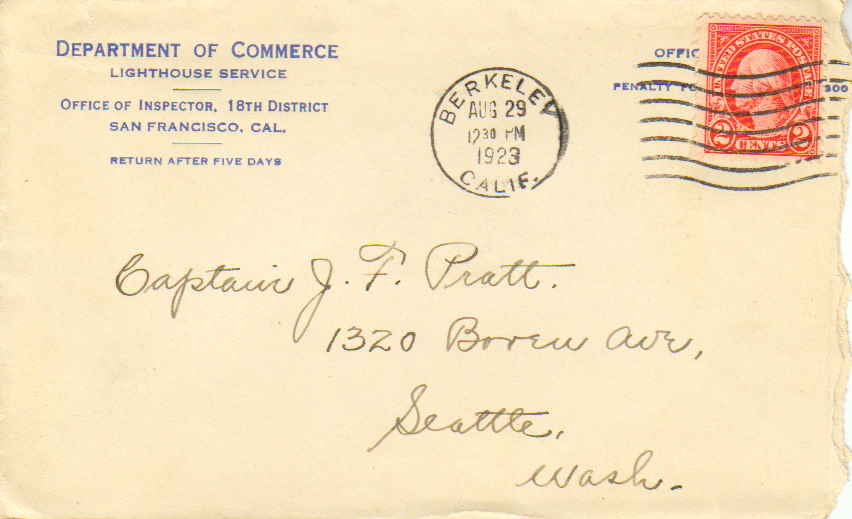 DEPARTMENT OF COMMERCE
LIGHTHOUSE SERVICE
OFFICE OF INSPECTOR, 18TH DISTRICT
SAN FRANCISCO, CAL.
RETURN AFTER FIVE DAYS
BERKELEY
AUG 29
12 30 PM
1923
CALIF.
OFFIC
PENALTY FO 300
UNITED STATES POSTAGE
2 CENTS 2
Captain J. F. Pratt.
1320 Boren Ave,
Seattle,
Wash.